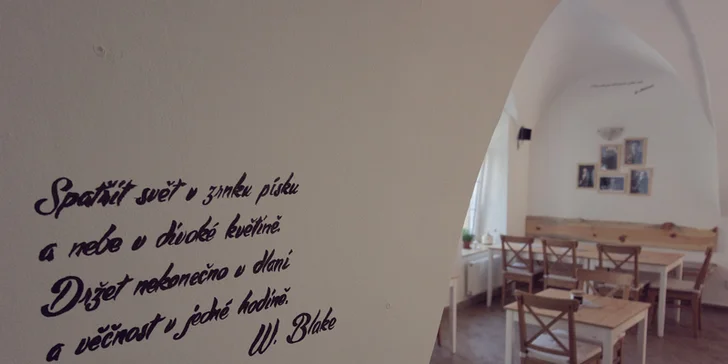 Spatřit svět v zrnku písku
a nebe v divoké květině.
Držet nekonečno v dlani
a věčnost v jedné hodině.
W. Blake